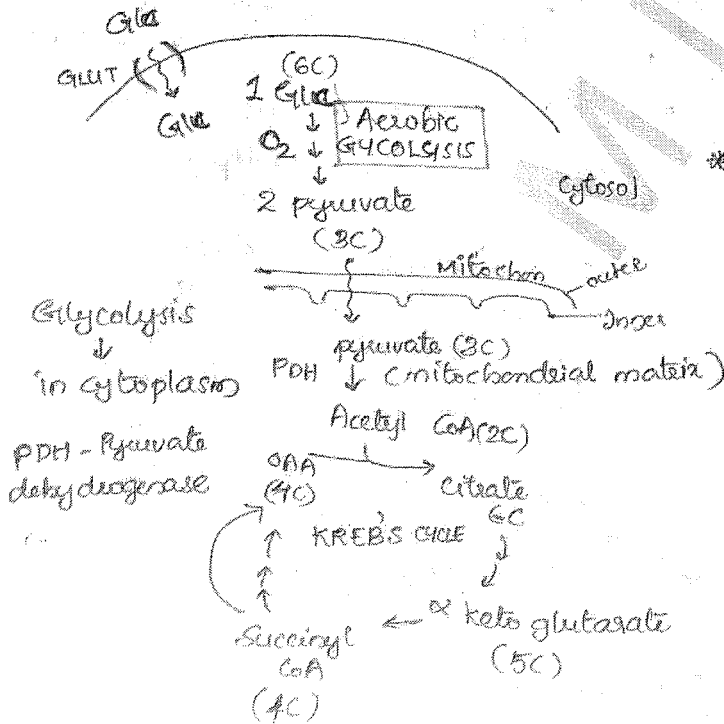 Glc
GLUT
Glc
(6C)
1 Glc
Aerobic
GYCOLSYSIS
O2
2 pyruvate
(3C)
Cytosol
*
Mitochon
outer
Inner
Glycolysis
in cytoplasm
PDH - Pyruvate
dehydrogenase
pyruvate (3C)
PDH (mitochondrial matrix)
Acetyl CoA (2C)
OAA
(4C)
Citrate
6C
KREB'S CYCLE
α keto glutarate
(5C)
Succinyl
CoA
(4C)